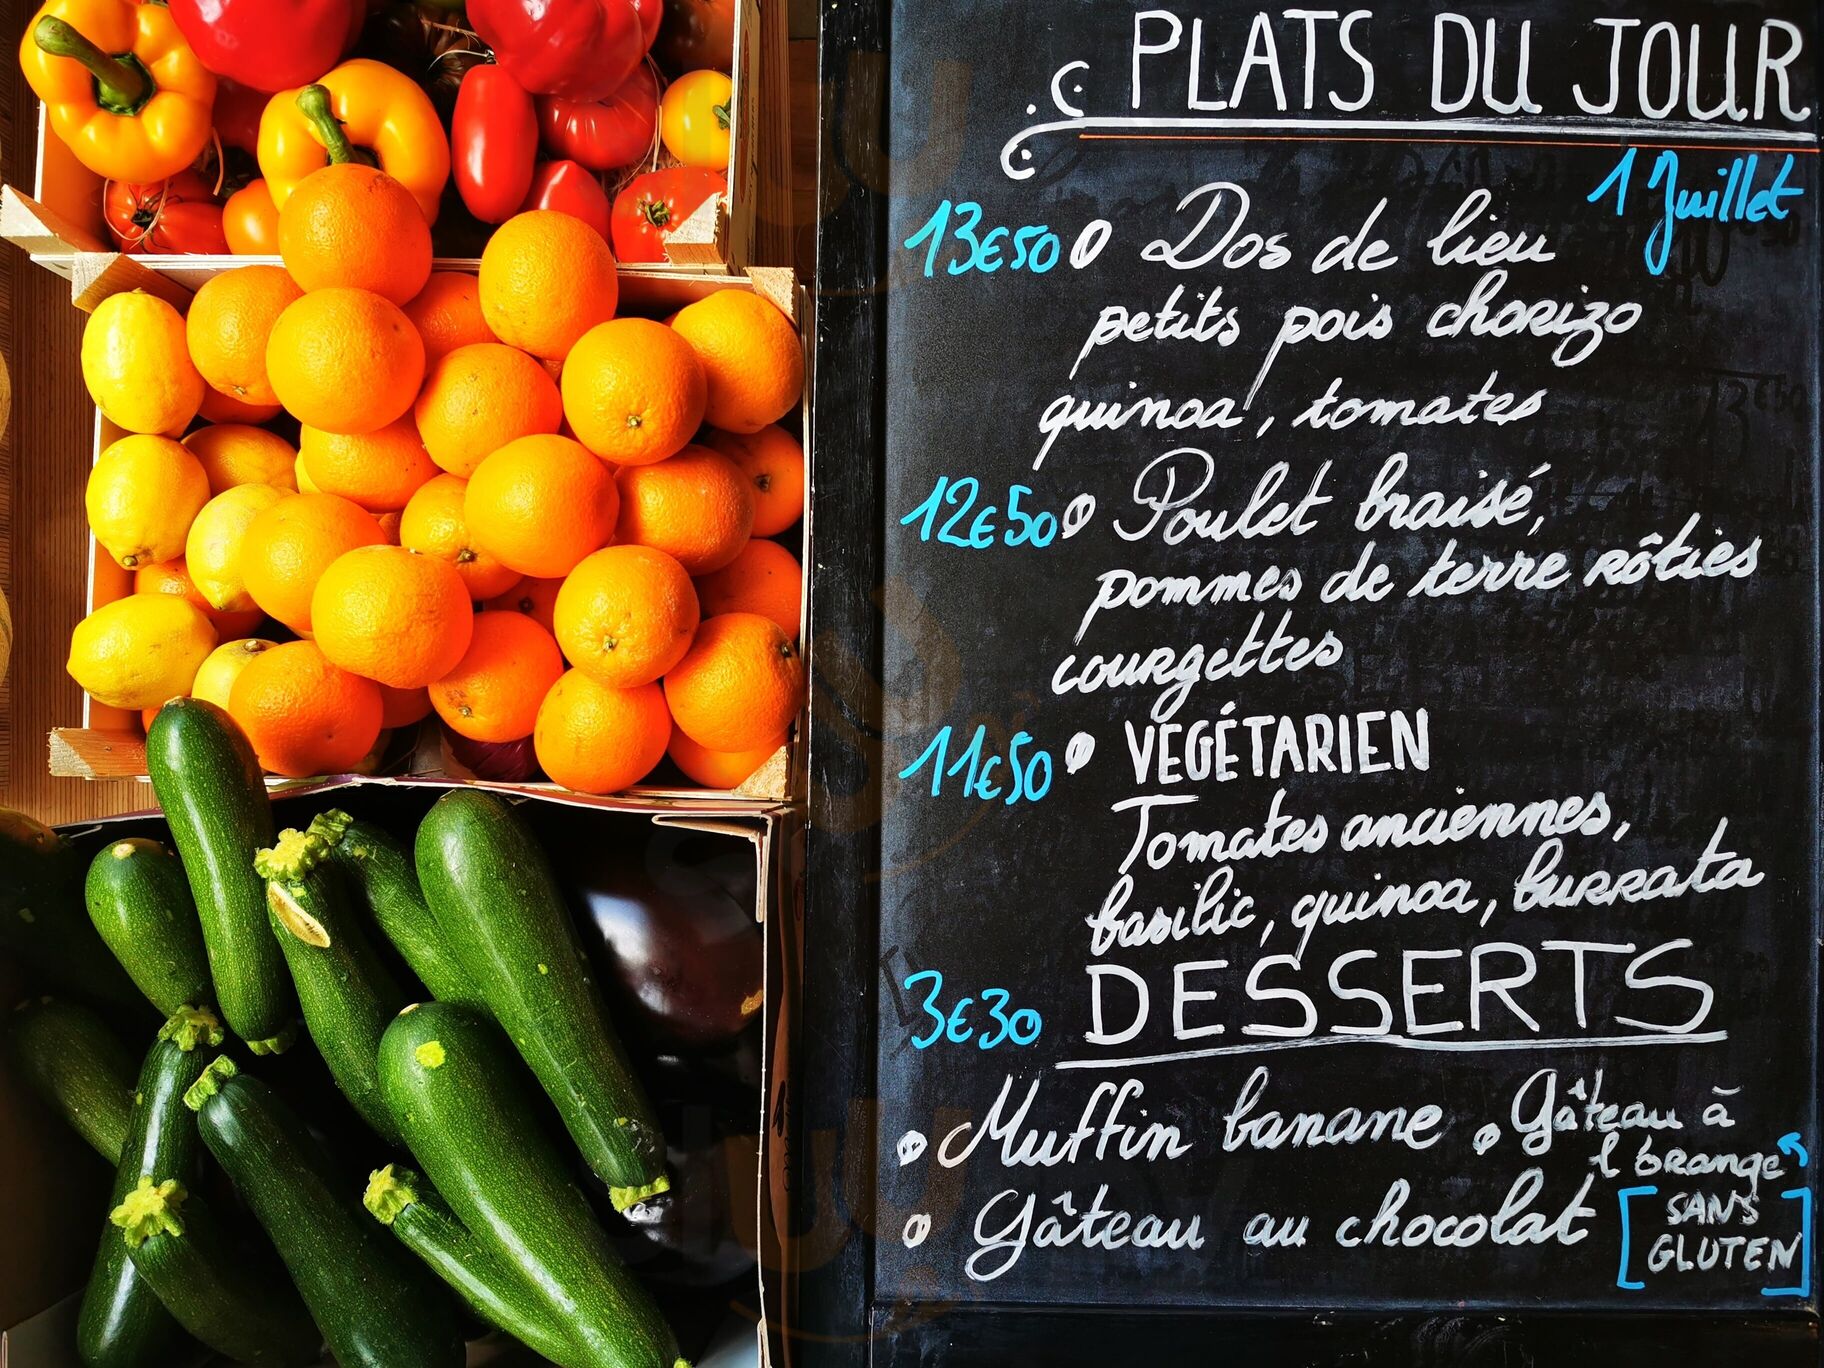 PLATS DU JOUR
1 Juillet
13€50 Dos de lieu
petits pois chorizo
quinoa, tomates
12€50 Poulet braisé,
pommes de terre rôties
courgettes
11€50 VEGÉTARIEN
Tomates anciennes,
basilic, quinoa, burrata
3€30 DESSERTS
Muffin banane Gâteau à
l'orange
Gâteau au chocolat
SANS
GLUTEN